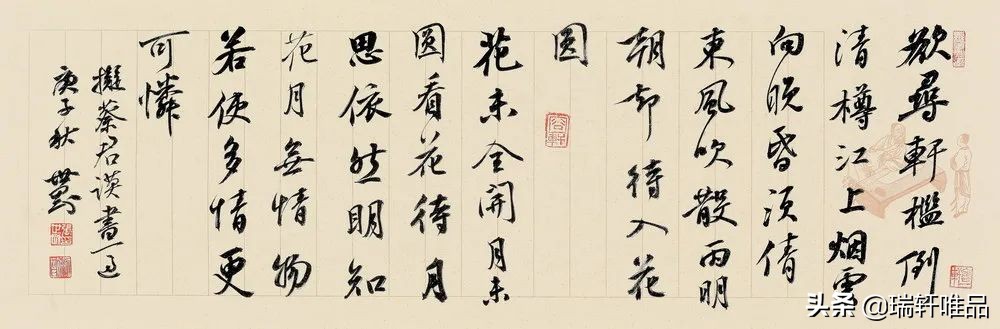 欲尋軒檻倒
清樽江上烟雲
向晚昏須倩
東風吹散雨明
朝却待入花
園
花未全開月未
圓看花待月
思依然明知
花月無情物
若使多情更
可憐
擬蔡君謨書一過
庚子秋
头条 @瑞轩唯品